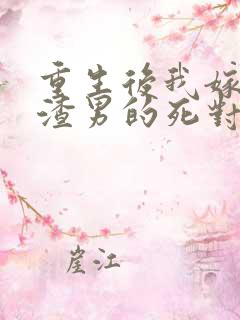 重生後我嫁
渣男的死對
崖江